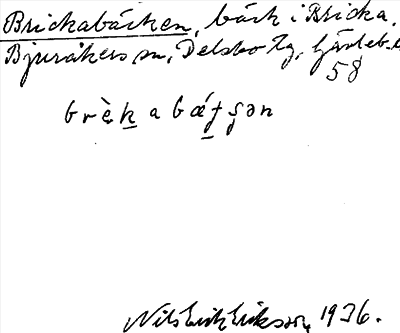 Brickabäcken, bäck i Bricka.
Bjuråkers sn, Delsbo tg, Gävleb.l
58
brὲkabǽʃʂən
Nils Erik Eriksson, 1936.